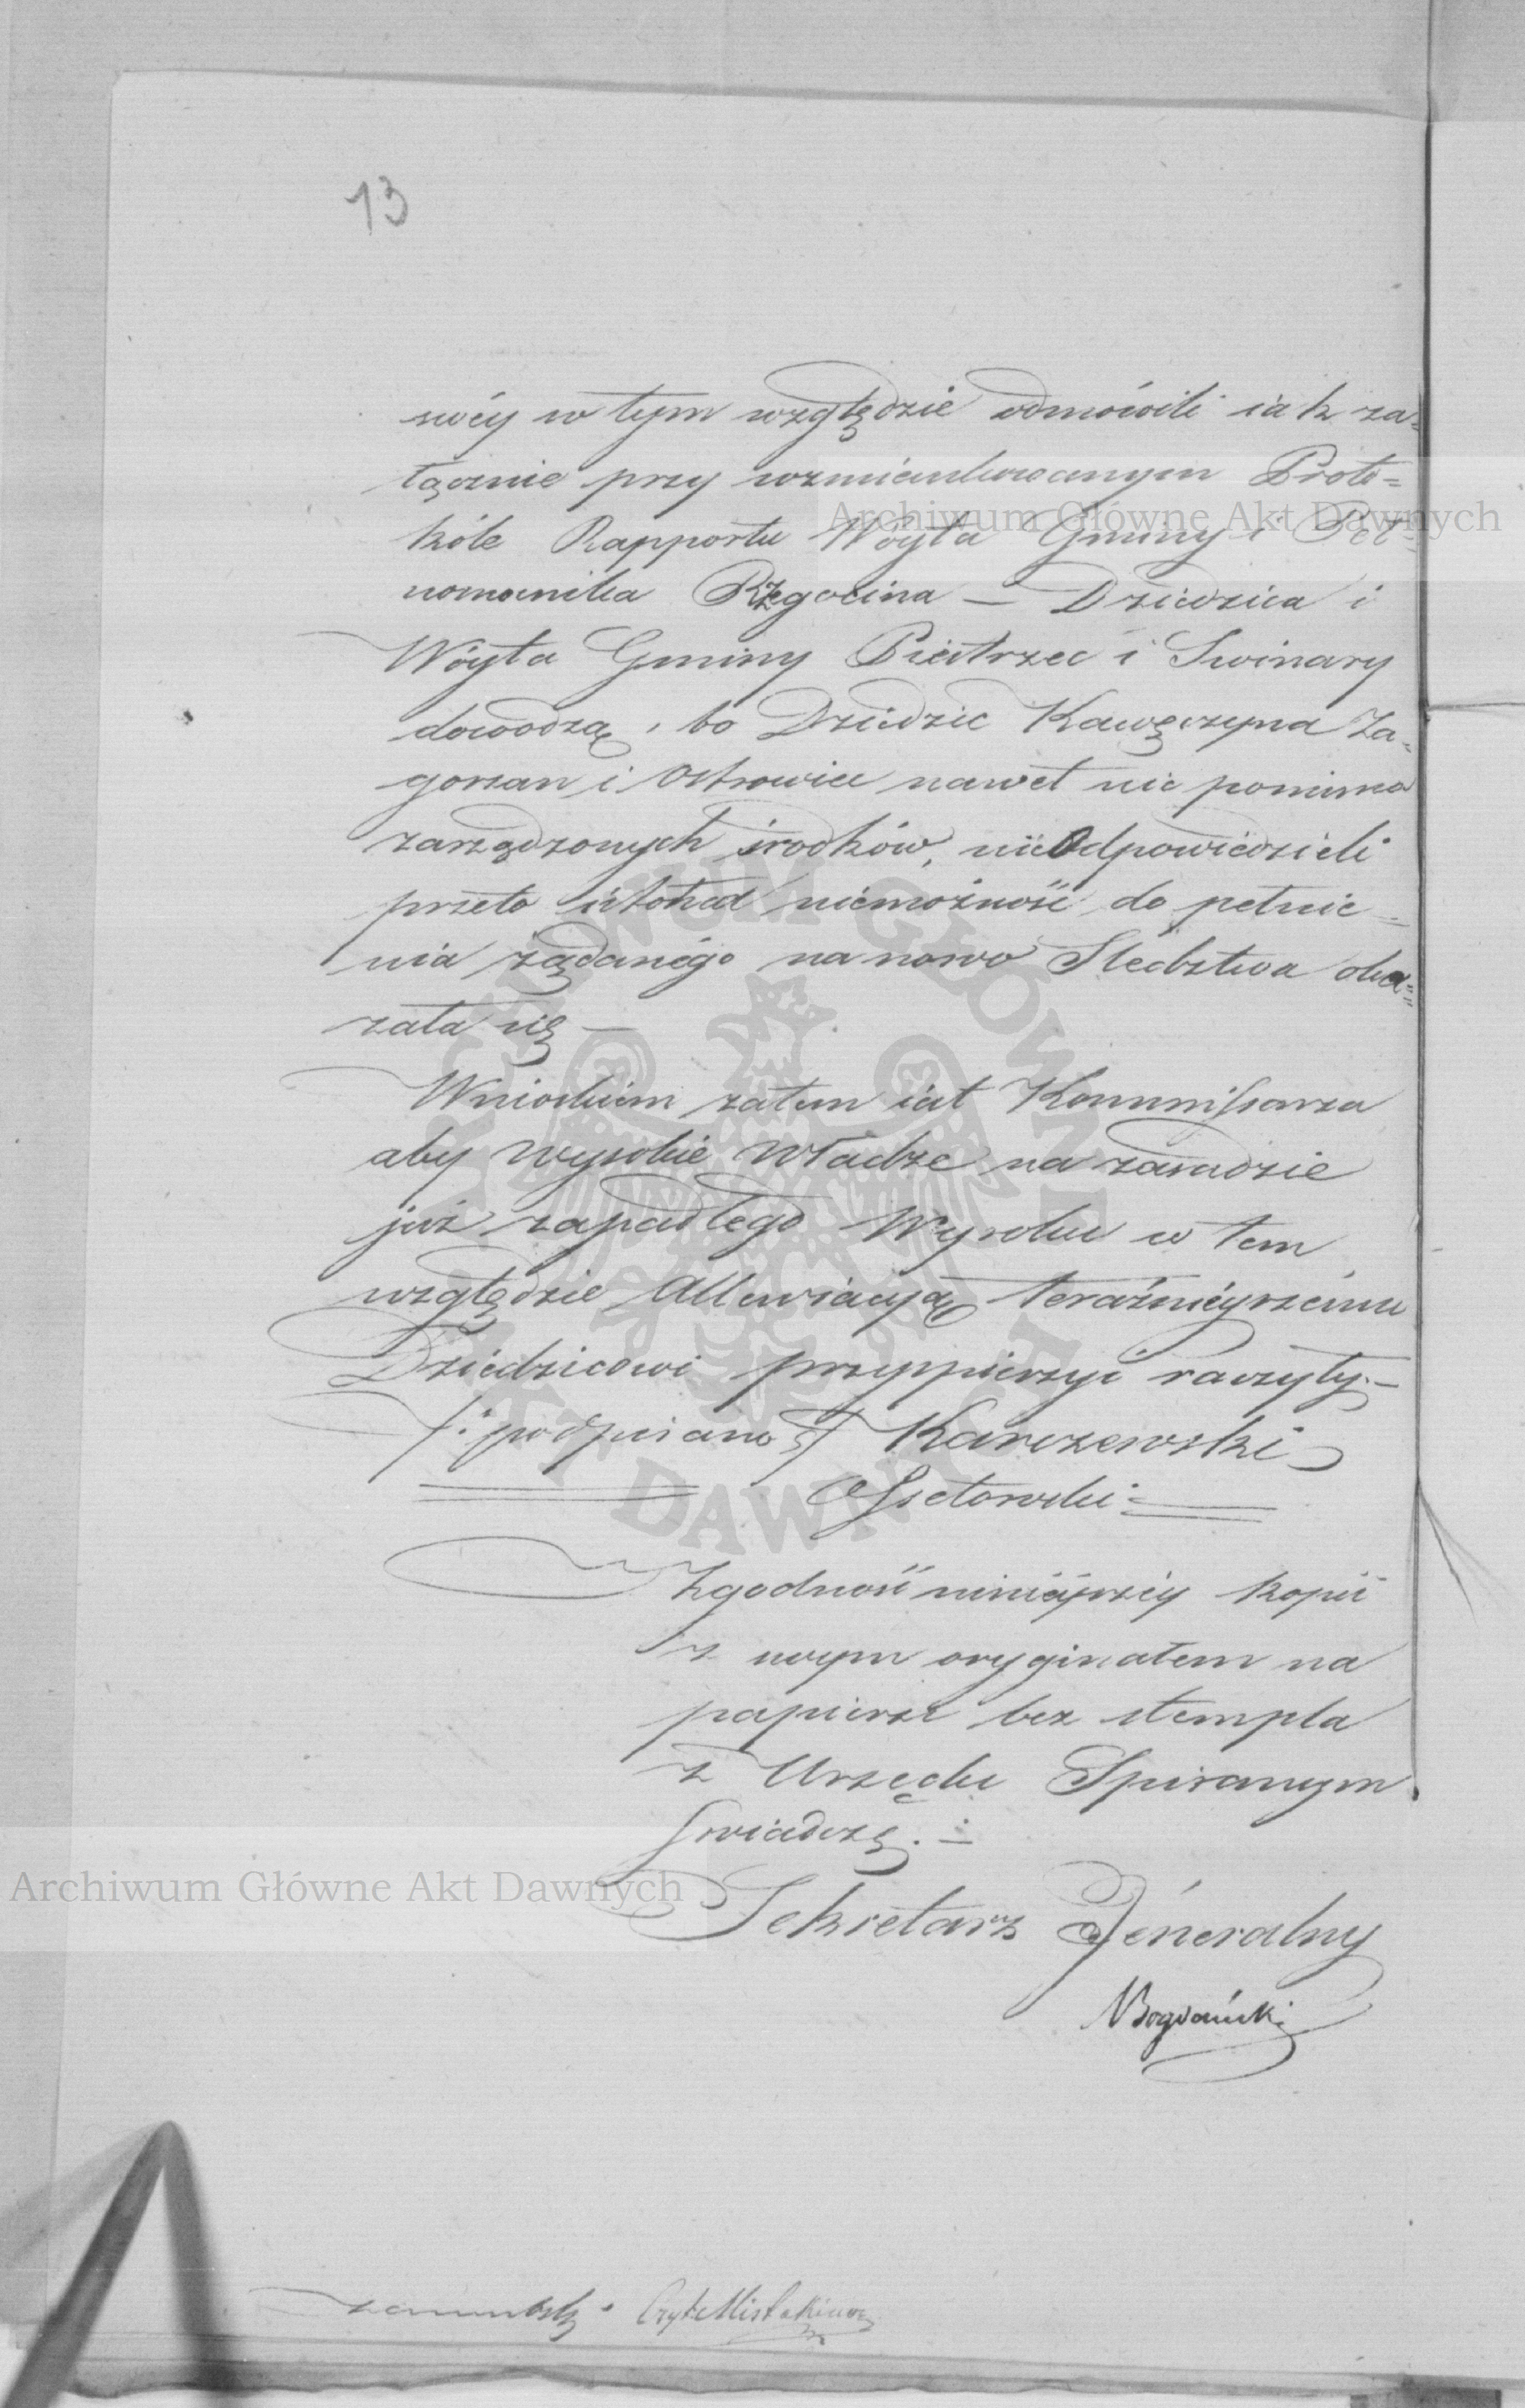 13
swéy w tym względzie odmówili iak za=
łącznie przy wzmiankowanym Proto=
kóle Rapportu Wóyta Gminy i Peł=
nomocnika Rzegocina — Dziedzica i
Wóyta Gminy Pietrzec i Swinary
dowodzą, bo Dziedzic Kawęczyna Za=
gorzan i Ostrowice nawet nic pomimo
zarządzonych środków, nieodpowiedzieli
przeto i ztąd niemożność do pełnie=
nia żądanégo na nowo Sledztwa oka=
zała się —
Wnioskiem zatem iest Kommissarza
aby Wysokie Władze na zasadzie
już zapadłego Wyroku w tem
względzie Allewiacyją teraźniéyszému
Dziedzicowi przyspieszyć raczyły. —
/: podpisano :/ Karczewski
Czytał Mis
Zgodność niniéyszéy kopii
z swym oryginałem na
papierze bez stempla
z Urzędu Spisanym
Swiadczę. —
Sekretarz Jéneralny
NBogdański
Archiwum Główne Akt Dawnych
Archiwum Główne Akt Dawnych
ARCHIWUM GŁÓWNE AKT DAWNYCH